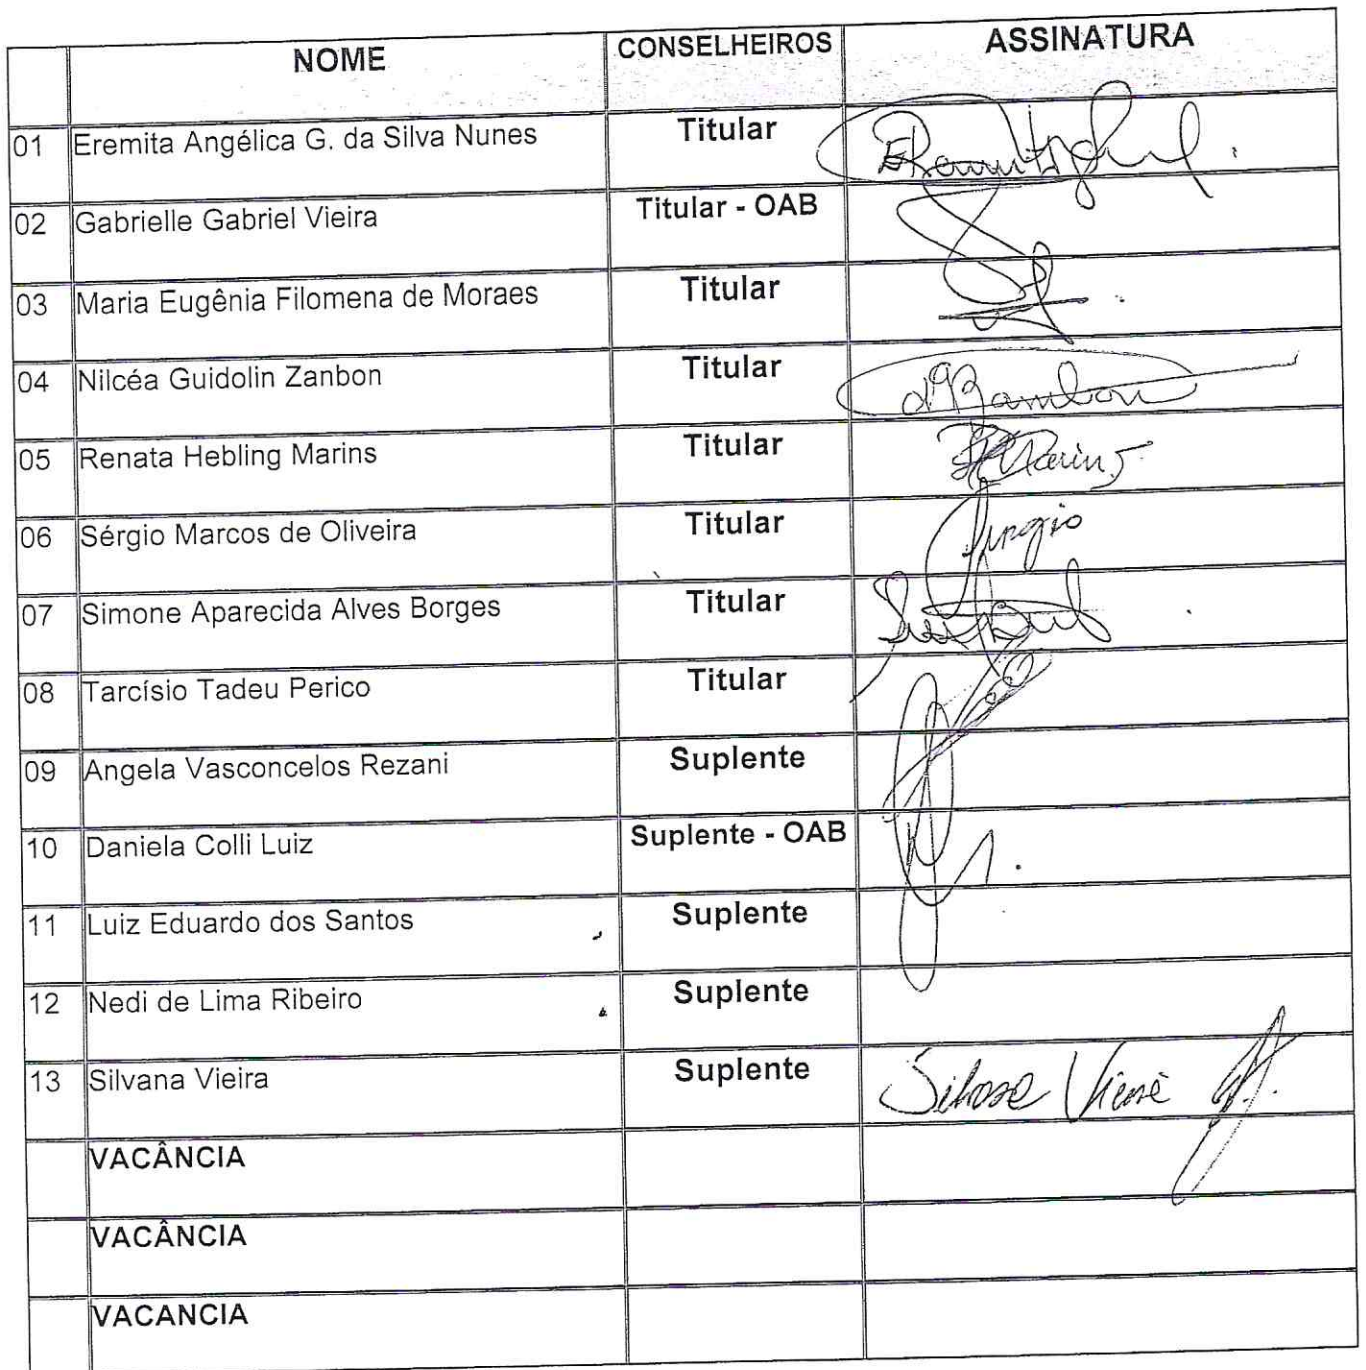 NOME CONSELHEIROS ASSINATURA
01 Eremita Angélica G. da Silva Nunes Titular
02 Gabrielle Gabriel Vieira Titular - OAB
03 Maria Eugênia Filomena de Moraes Titular
04 Nilcéa Guidolin Zanbon Titular
05 Renata Hebling Marins Titular Marins
06 Sérgio Marcos de Oliveira Titular
07 Simone Aparecida Alves Borges Titular
08 Tarcísio Tadeu Perico Titular
09 Angela Vasconcelos Rezani Suplente
10 Daniela Colli Luiz Suplente - OAB
11 Luiz Eduardo dos Santos Suplente
12 Nedi de Lima Ribeiro Suplente
13 Silvana Vieira Suplente
VACÂNCIA
VACÂNCIA
VACANCIA